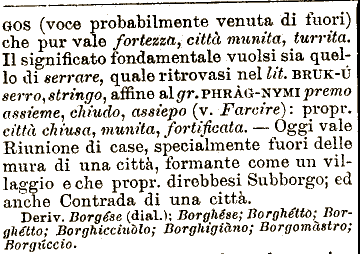 GOS (voce probabilmente venuta di fuori)
che pur vale fortezza, città munita, turrita.
Il significato fondamentale vuolsi sia quel-
lo di serrare, quale ritrovasi nel lit. BRUK-Ù
serro, stringo, affine al gr. PHRÀG-NYMI premo
assieme, chiudo, assiepo (v. Farcire): propr.
città chiusa, munita, fortificata. — Oggi vale
Riunione di case, specialmente fuori delle
mura di una città, formante come un vil-
laggio e che propr. direbbesi Subborgo; ed
anche Contrada di una città.
Deriv. Borgése (dial.); Borghése; Borghétto; Bor-
ghétto; Borghicciuòlo; Borghigiàno; Borgomàstro;
Borgúccio.